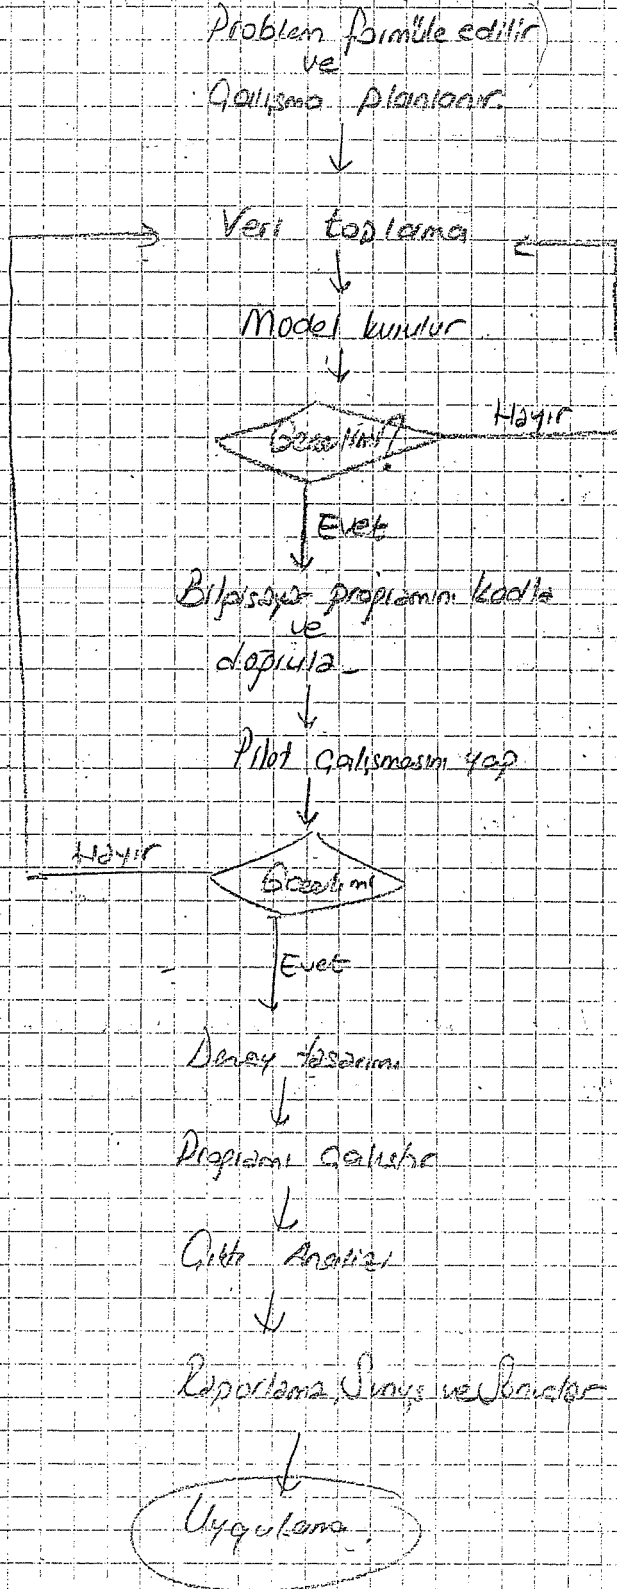 Problem formüle edilir
ve
Çalışma planlanır.
Veri toplama
Model kurulur
Geçerlimi?
Hayır
Evet
Bilgisayar programını kodla
ve
doğrula
Pilot çalışmasını yap
Hayır
Geçerlimi
Evet
Deney tasarımı
Programı çalıştır
Çıktı Analizi
Raporlama, Sunuş ve Sonuçlar
Uygulama.